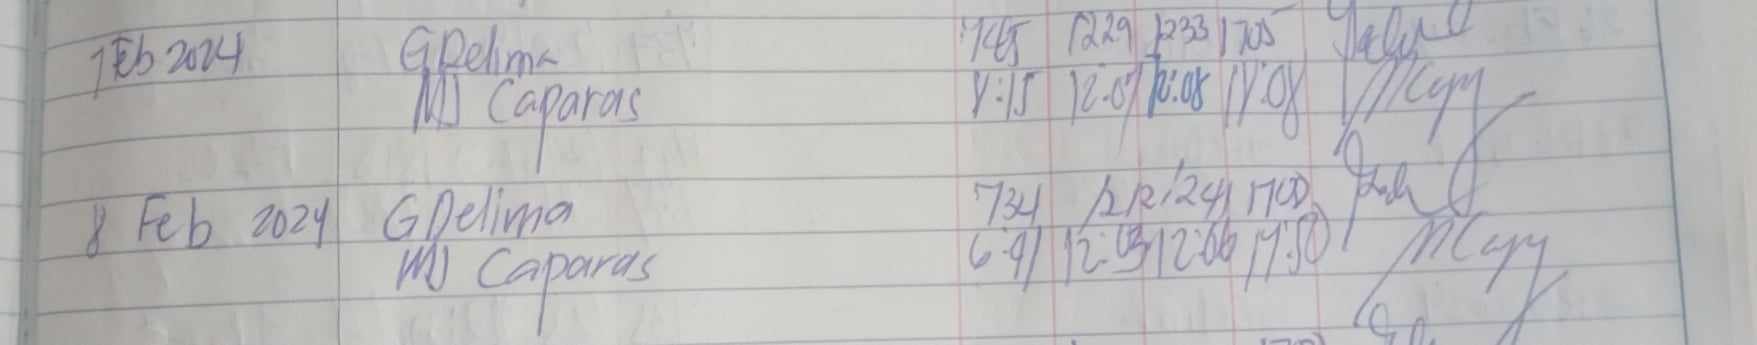 7 Feb 2024 GDelima 745 1229 1233 1705
MJ Caparas 12:07 12:08 17:08
8 Feb 2024 GDelima 734 1212 1241 1700
MJ Caparas 6:41 12:03 12:06 17:50